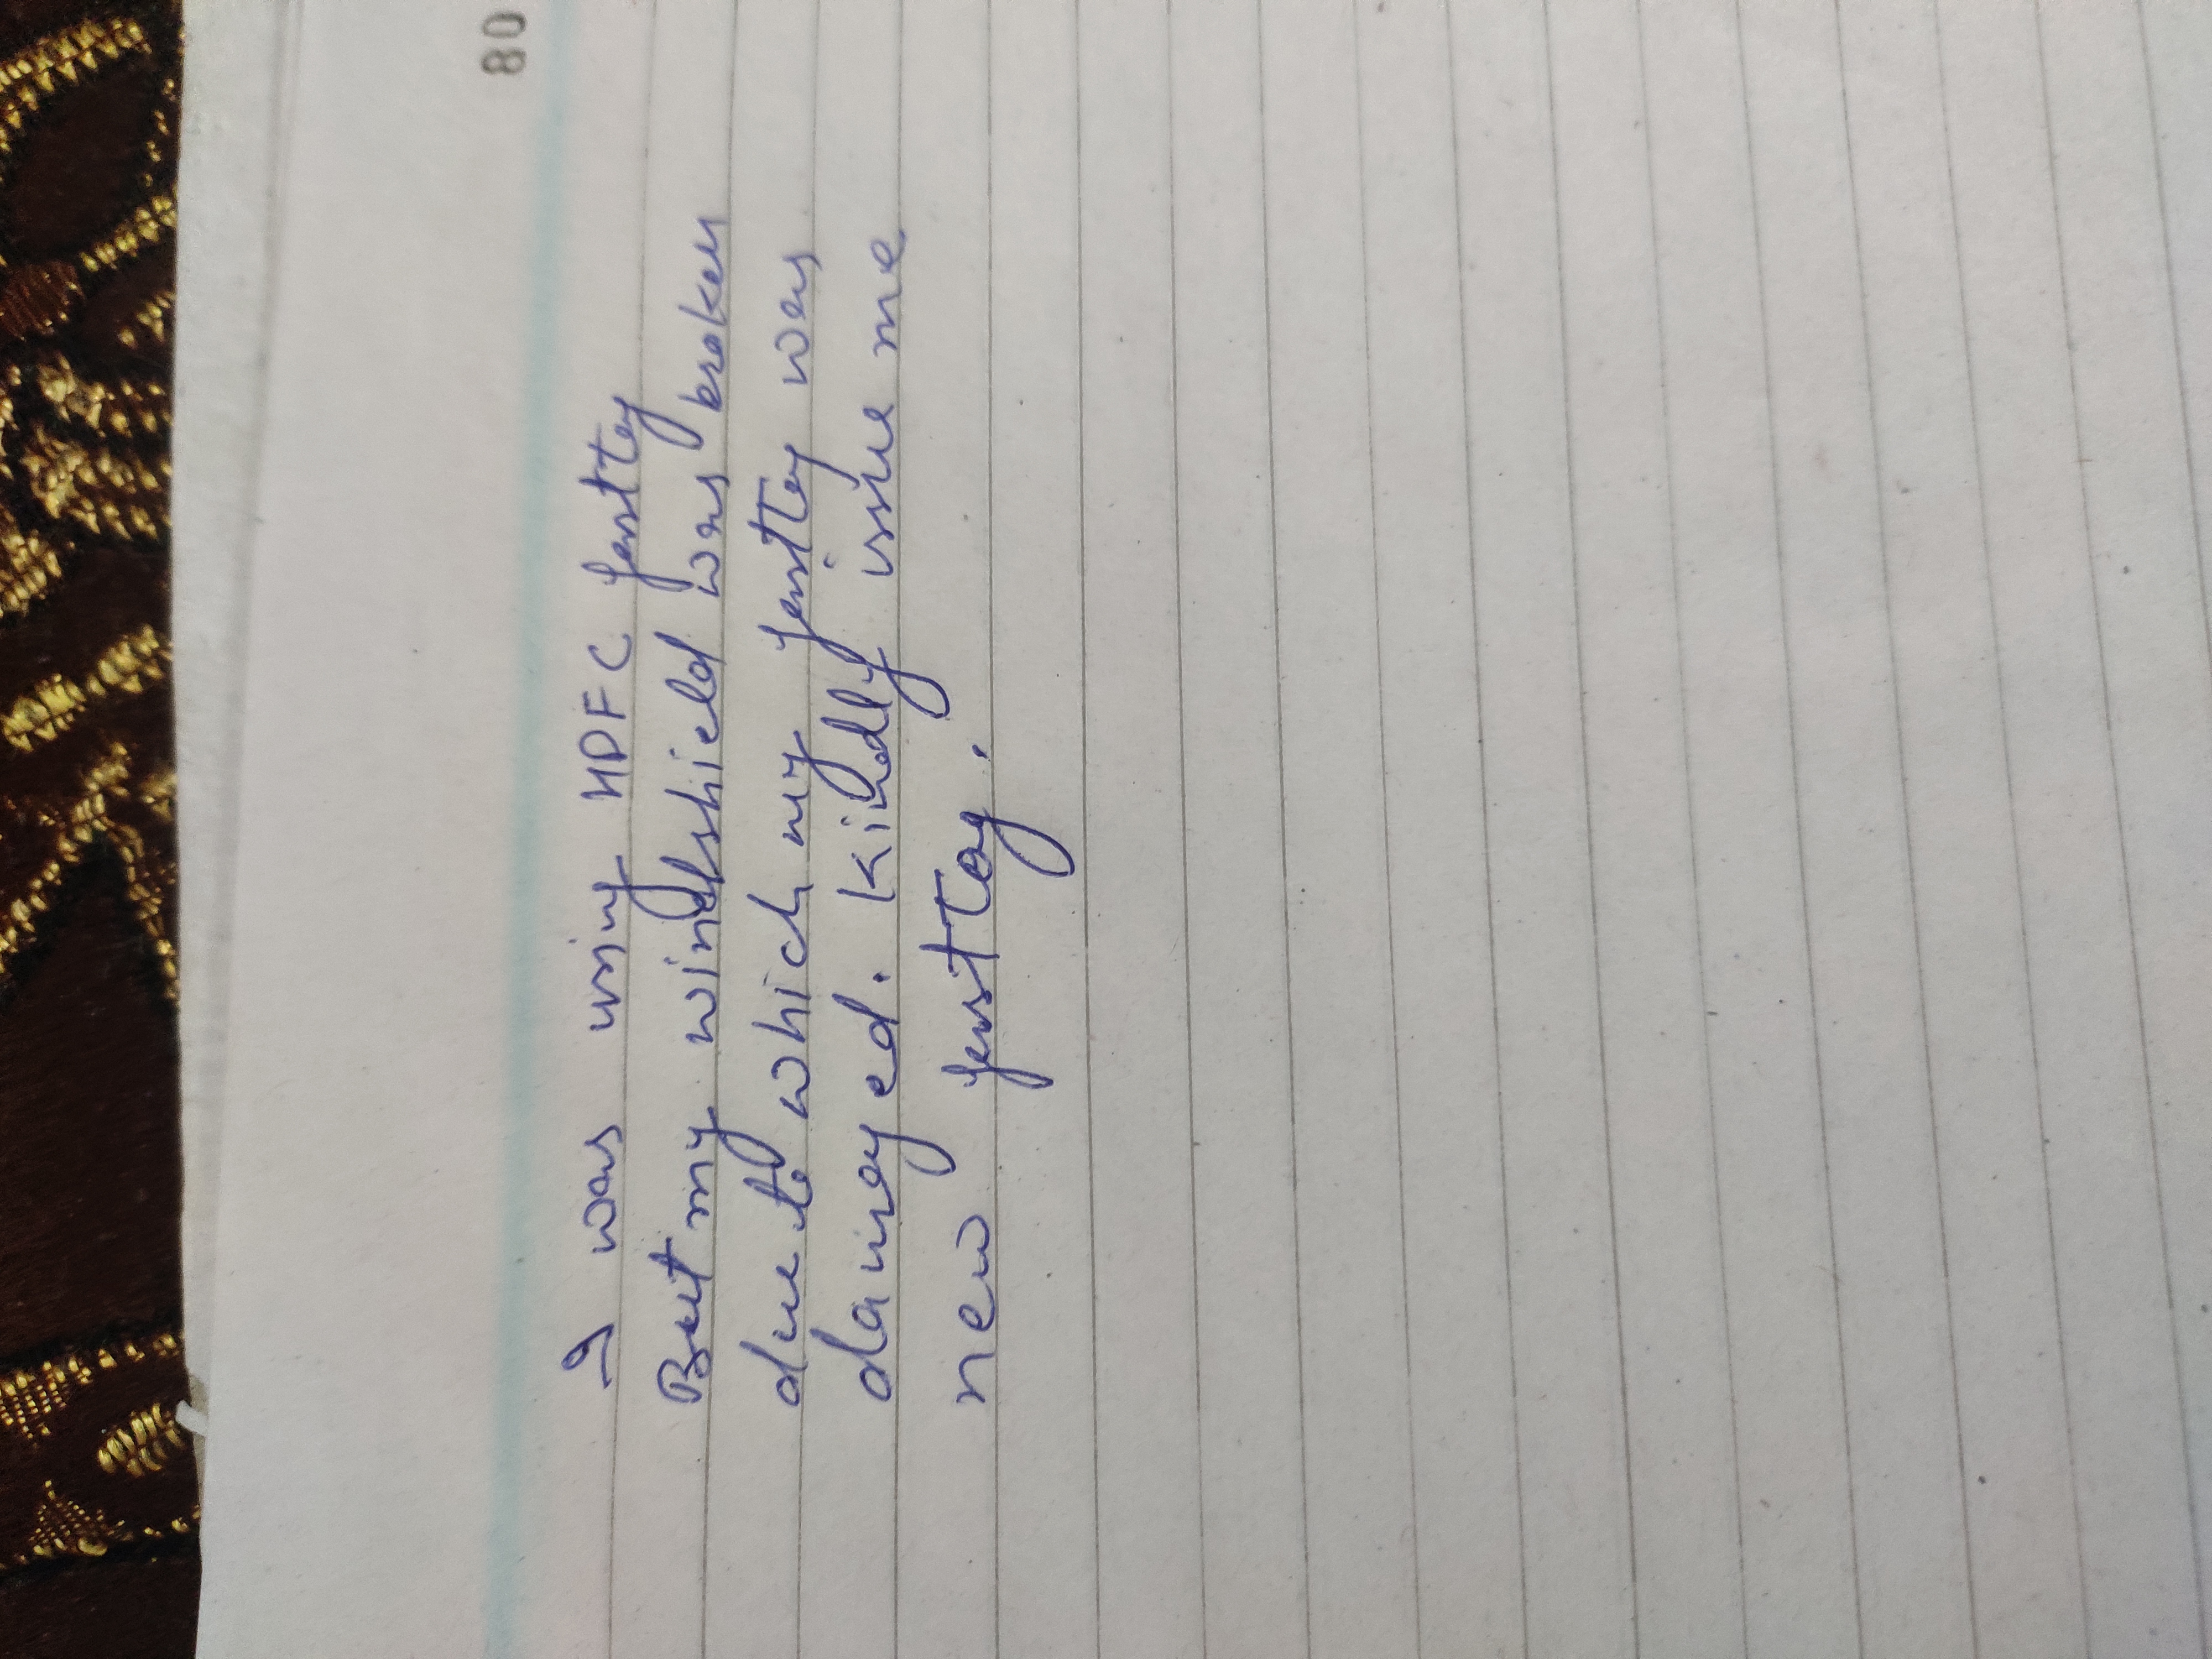 80
I was using HDFC fasttag
But my windshield was broken
due to which my fasttag was
damaged. Kindly issue me
new fasttag.